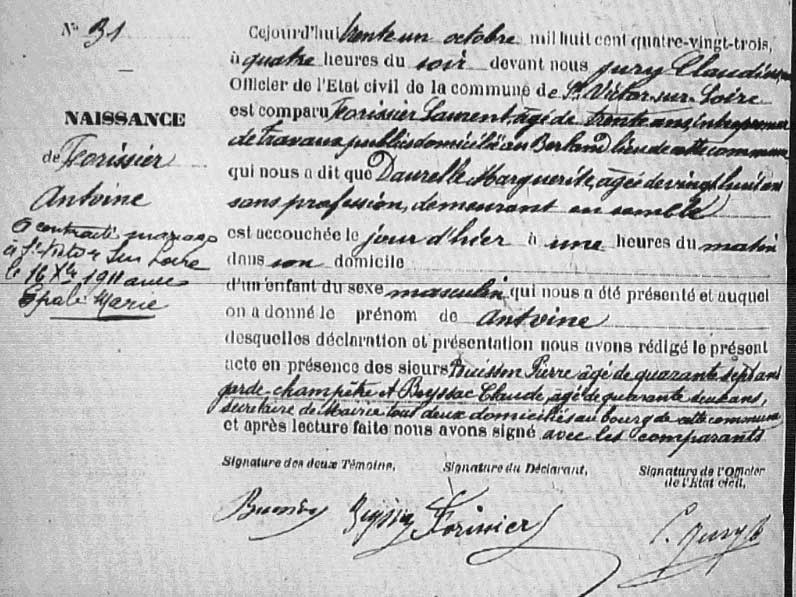 N° 31
NAISSANCE
de Forissier
Antoine
a contracté mariage
à St Victor sur Loire
le 16 Xbre 1911 avec
Epalé Marie
Cejourd'hui trente un octobre mil huit cent quatre-vingt-trois,
à quatre heures du soir devant nous Jury Claudius
Officier de l'Etat civil de la commune de St Victor-sur-Loire
est comparu Forissier Laurent, âgé de trente ans, entrepreneur
de travaux publics domicilié au Berland, lieu de cette commune
qui nous a dit que Daurelle Marguerite, âgée de vingt huit ans
sans profession, demeurant ensemble
est accouchée le jour d'hier à une heures du matin
dans son domicile
d'un enfant du sexe masculin qui nous a été présenté et auquel
on a donné le prénom de Antoine
desquelles déclaration et présentation nous avons rédigé le présent
acte en présence des sieurs Buisson Pierre âgé de quarante sept ans
garde-champêtre et Beyssac Claude, âgé de quarante ans,
secrétaire de Mairie tous deux domiciliés au bourg de cette commune
et après lecture faite nous avons signé avec les comparants
Signature des deux Témoins,
Signature du Déclarant,
Signature de l'Officier
de l'Etat civil,
Buisson Beyssac Forissier C. Jury